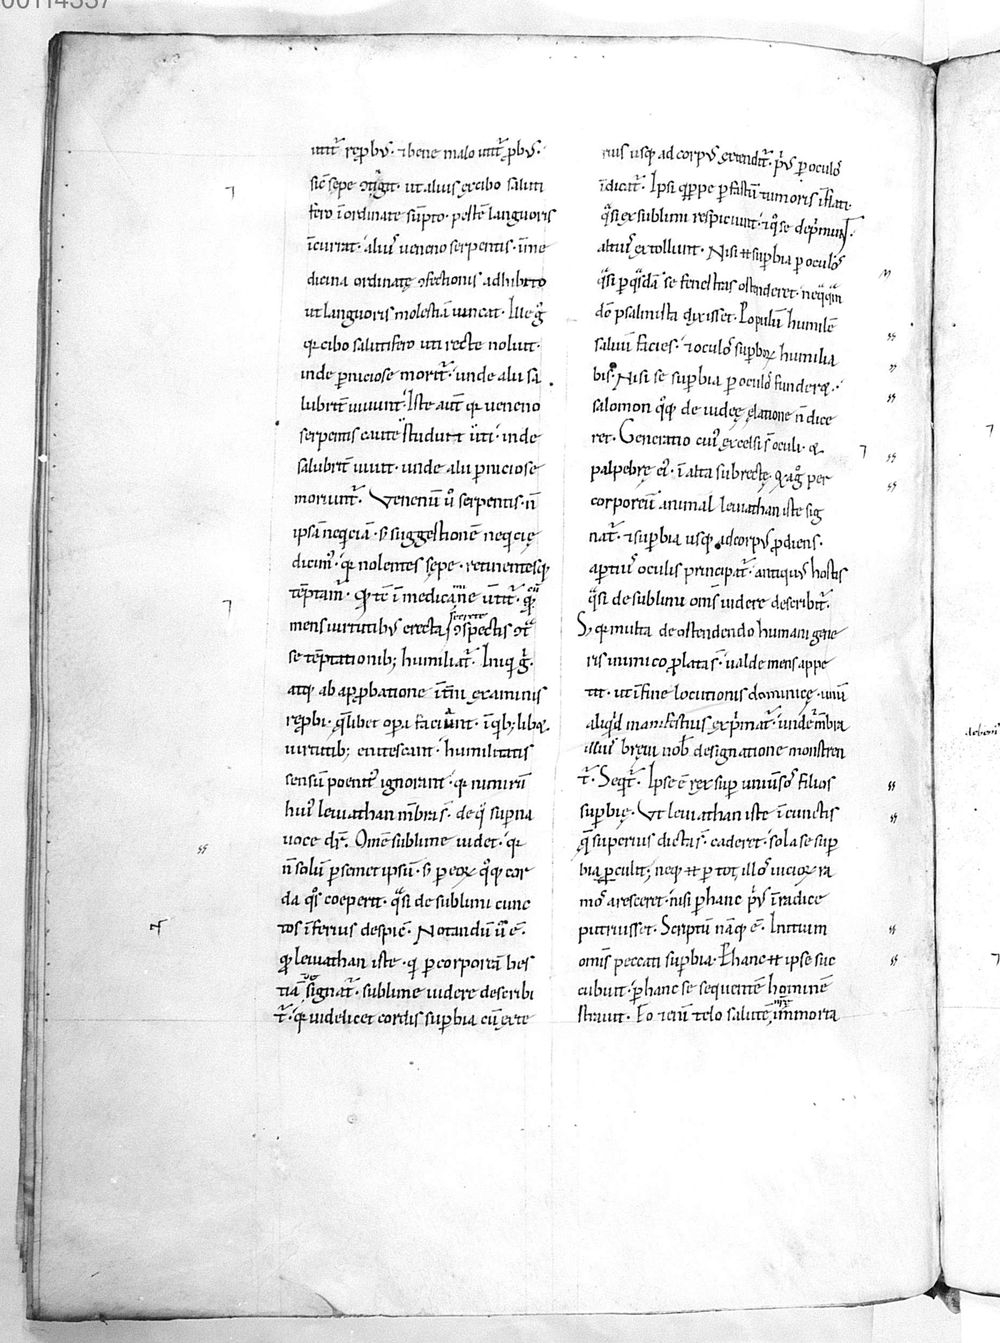 00114337
utit᷑ rep̱bꝰ· ⁊ bene malo utit᷑ p̱bꝰ·
sic̄ sepe ↄtīgit· ut alius ex cibo saluti
fero īordinate sūpto· pestē languoris
īcurrat· aliuꝰ ueneno serpentis· ī me
dicina ordinatę ↄfectionis adhibito
ut languoris molestiā uincat· Ille g̊
q̇ cibo salutifero uti recte noluit·
inde p̱niciose morit᷑· unde alii sa
lubrit᷑ uiuunt· Iste aut̄ q̇ ueneno
serpentis caute studuit uti· inde
salubrit᷑ uiuit· unde alii p̱niciose
moriunt᷑· Venenū ů serpentis· n̄
ipsā neq̇ciā· s; suggestionē neq̇cię
dicimꝰ· q̇ nolentes sepe· retinentesq;
tēptam᷑· Q̇ tc̄ ī medicamine utit᷑· q̄n
mens uirtutibꝰ erecta secrete ↄspectis ↄt᷑
se tēptationib; humiliat᷑· Iniq̇ g̊·
atq; ab app̱batione īt̄ni examinis
rep̱bi· q̄libet op̱a faciant· īq̇b;libꝫ
uirtutib; enitescant· humilitatis
sensū poenit᷑ ignorant· q̇ nimirū
huiꝰ leuiathan mēbra s̄· de q̊ sup̱na
uoce dr̄· Om̄e sublime uidet· q̇
n̄ solū p̱ semet ipsū· s; p̱ eoꝝ q̊q; cor
da q̊s coeperit· q̊si de sublimi cunc
tos īferius despic̄· Notandū ů ē·
q̊ leuiathan iste· q̇ p̱ corporeā bes
tiā signat᷑· sublime uidere describi
t᷑· q̇ uidelicet cordis sup̱bia cū exte
rius usq; ad corpꝰ extendit᷑· ṗꝰ p̱ oculos
īdicat᷑· Ipsi q̇ppe p̱ fastū tumoris īflati·
q̊si ex sublimi respiciunt· ⁊ q̊ se deṗmunt·
altiuꝰ extollunt· Nisi eī sup̱bia p̱ oculos
q̊si p̱ q̊sdā se fenestras ostenderet· neq̊q̊m
dō psalmista dixisset· Populū humilē
saluū facies· ⁊ oculos sup̱boꝝ humilia
bis· Nisi se sup̱bia p̱ oculos funderet·
salomon q̊q; de iudeę elatione n̄ dice
ret· Generatio cuiꝰ excelsi s̄ oculi· &
palpebrę eiꝰ· ī alta subrectę· Q̇a g̊ per
corporeū animal leuiathan iste sig
nat᷑· ⁊ sup̱bia usq; ad corpꝰ p̱diens·
ap̱tiuꝰ oculis principat᷑· antiquus hostis
q̊si de sublimi om̄s uidere describit᷑·
S; q̇ multa de ostendendo humani gene
ris inimico p̱lata s̄· ualde mens appe
tit· ut ī fine locutionis dominicę· unū
aliq̇d manifestius exṗmat᷑· unde mēbra
illiuꝰ breui nob̄ designatione monstren
t᷑· Seq̇t᷑· Ipse ē rex sup̱ uniūsos filios
sup̱bię· Vt leuiathan iste ī cunctis
q̄ superius dicta s̄· caderet· sola se sup̱
bia p̱culit; neq; eī p̱ tot illos uicioꝝ ra
mos aresceret· nisi p̱ hanc ṗꝰ ī radice
putruisset· Scriptū nāq; ē· Initium
om̄is peccati sup̱bia· P̱ hanc eī ipse suc
cubuit· p̱ hanc se sequentē hominē
strauit· Eo ⁊enī telo salutē nr̄ę īmorta